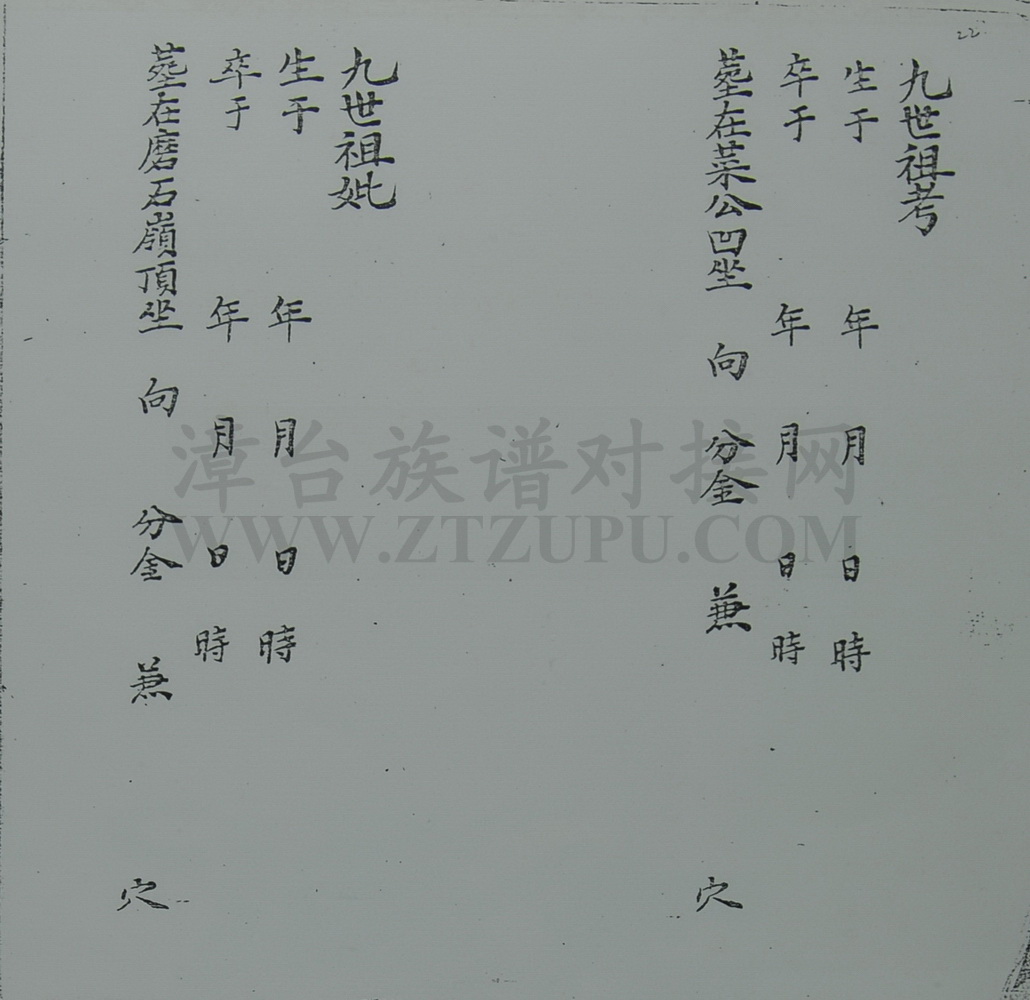 22
九世祖考
生于 年 月 日 時
卒于 年 月 日 時
塟在菜公凹坐 向 分金 兼 穴
九世祖妣
生于 年 月 日 時
卒于 年 月 日 時
塟在磨石嶺頂坐 向 分金 兼 穴
漳台族谱对接网
WWW.ZTZUPU.COM